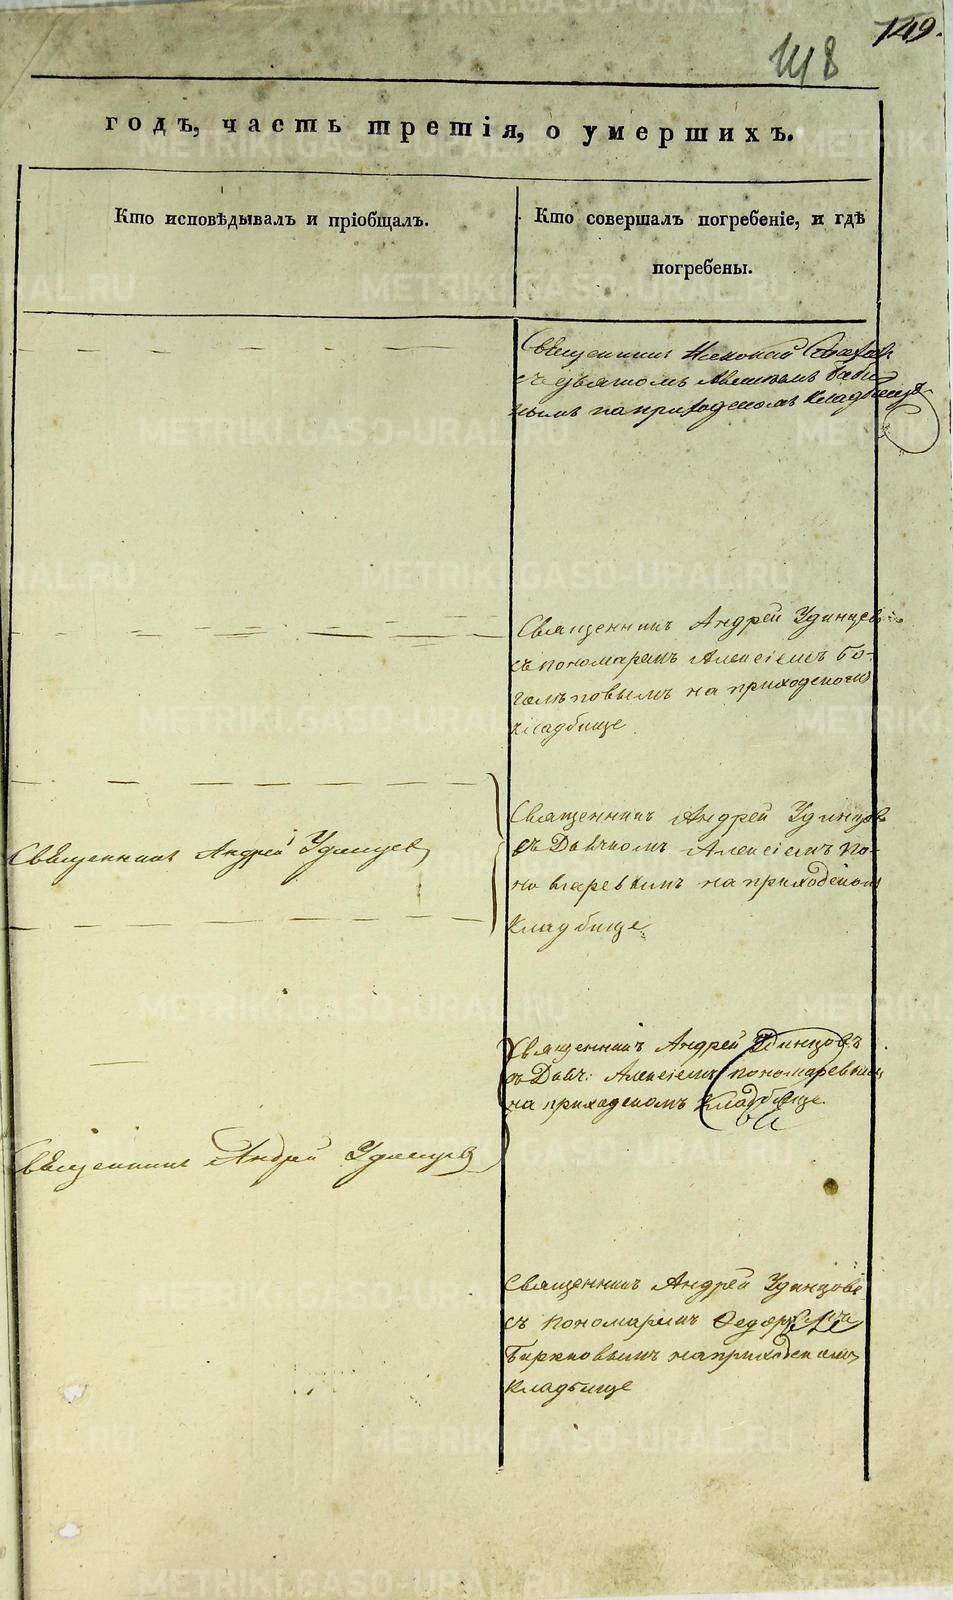 149.
118
годъ, часть третія, о умершихъ.
Кто исповѣдывалъ и пріобщалъ.
Кто совершалъ погребеніе, и гдѣ
погребены.
Священникъ
съ дьячкомъ
на приходскомъ кладбище
Священникъ Андрей Удинцевъ
съ пономаремъ Алексіемъ Бо-
голѣповымъ на приходскомъ
кладбище
Священникъ Андрей Удинцовъ
съ Дьячкомъ Алексіемъ По-
номаревымъ на приходском
кладбище
Священникъ Андрей Удинцевъ
Священникъ Андрей Удинцовъ
съ Дьяч: Алексіемъ Пономаревымъ
на приходскомъ кладбище.
Священникъ Андрей Удинцевъ
Священникъ Андрей Удинцовъ
съ пономаремъ Ѳедоромъ
Бирюковымъ на приходскомъ
кладбище
METRIKI.GASO-URAL.RU